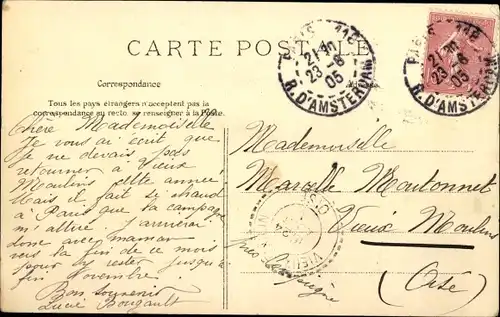 CARTE POSTALE
PARIS 118
21 10
23-8
05
R. D'AMSTERDAM
PARIS 118
21 10
23-8
05
R. D'AMSTERDAM
Correspondance
Tous les pays étrangers n'acceptent pas la
correspondance au recto. se renseigner à la Poste.
Chère Mademoiselle
Je vous ai écrit que
je ne devais pas
retourner à Vieux
Moulins cette année!
Mais il fait si chaud
à Paris que la campagne
m'attire. J'arriverai
donc avec maman
vers la fin de ce mois
pour y rester jusqu'en
fin Novembre.
Bon souvenir
Lucie Bougault
Mademoiselle
Marcelle Moutonnet
Vieux Moulins
près Compiègne
(Oise)
OISE